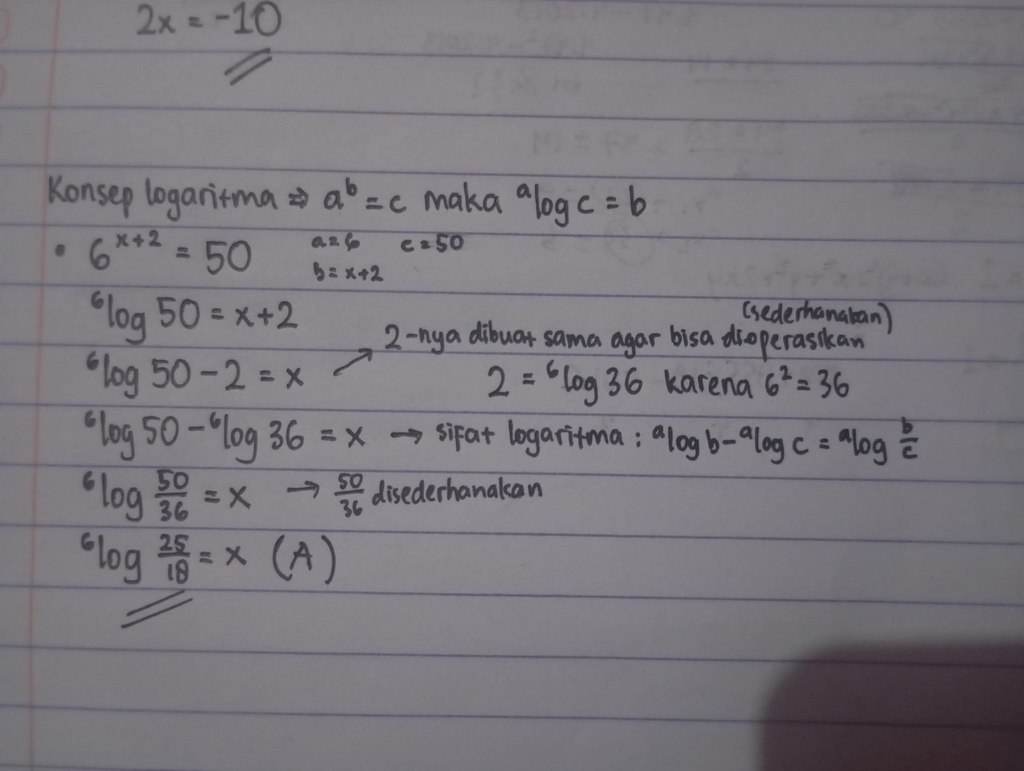 2x = -10
Konsep logaritma ⇒ aᵇ = c maka ᵃlog c = b
• 6ˣ⁺² = 50 a = 6 c = 50
b = x+2
⁶log 50 = x+2
(sederhanakan)
2-nya dibuat sama agar bisa dioperasikan
⁶log 50 - 2 = x ↗ 2 = ⁶log 36 karena 6² = 36
⁶log 50 - ⁶log 36 = x → sifat logaritma : ᵃlog b - ᵃlog c = ᵃlog b/c
⁶log 50/36 = x → 50/36 disederhanakan
⁶log 25/18 = x (A)